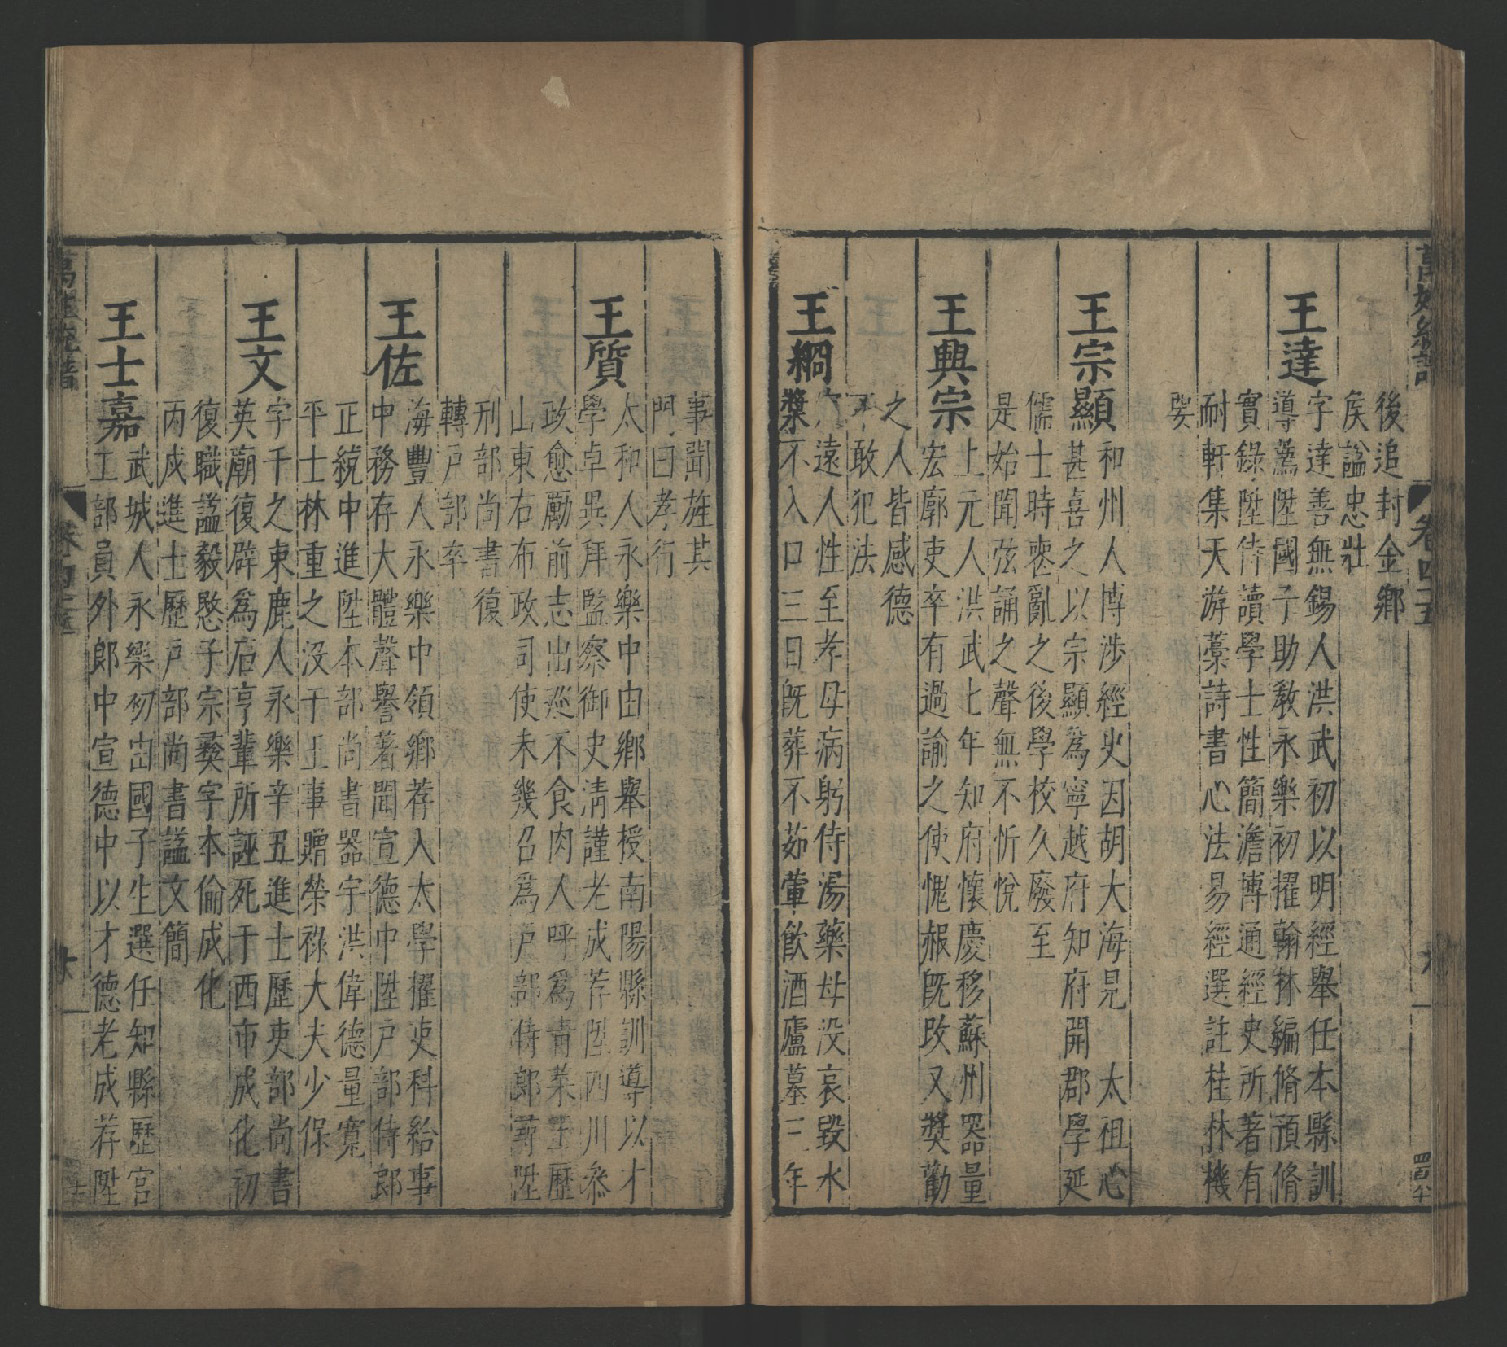 萬姓統譜
卷四十五
後追封金鄉
侯謚忠壯
王達
字達善無錫人洪武初以明經舉任本縣訓
導薦陞國子助教永樂初擢翰林編脩預脩
實錄陞侍讀學士性簡澹博通經史所著有
耐軒集天游藁詩書心法易經選註桂林機
要
王宗顯
和州人博涉經史因胡大海見 太祖心
甚喜之以宗顯爲寧越府知府開郡學延
儒士時喪亂之後學校久廢至
是始聞弦誦之聲無不忻悅
王興宗
上元人洪武七年知府懷慶移蘇州器量
宏廓吏卒有過諭之使愧赧旣攺又獎勸
之人皆感德
不敢犯法
王綱
遠人性至孝母病躬侍湯藥母没哀毀水
漿不入口三日旣葬不茹葷飲酒廬墓三年
事聞旌其
門曰孝行
王質
太和人永樂中由鄉舉授南陽縣訓導以才
學卓異拜監察御史清謹老成荐陞四川叅
政愈勵前志出廵不食肉人呼爲青菜王歷
山東右布政司使未幾召爲户部侍郎尋陞
刑部尚書復
轉户部卒
王佐
海豐人永樂中領鄉荐入太學擢吏科給事
中務存大體聲譽著聞宣德中陞户部侍郎
正統中進陞本部尚書器宇洪偉德量寬
平士林重之没于王事贈榮祿大夫少保
王文
字千之束鹿人永樂辛丑進士歷吏部尚書
英廟復辟爲石亨輩所誣死于西市成化初
復職謚毅愍子宗彜字本倫成化
丙戍進士歷户部尚書謚文簡
王士嘉
武城人永樂初由國子生選任知縣歷官
工部員外郎中宣德中以才德老成荐陞